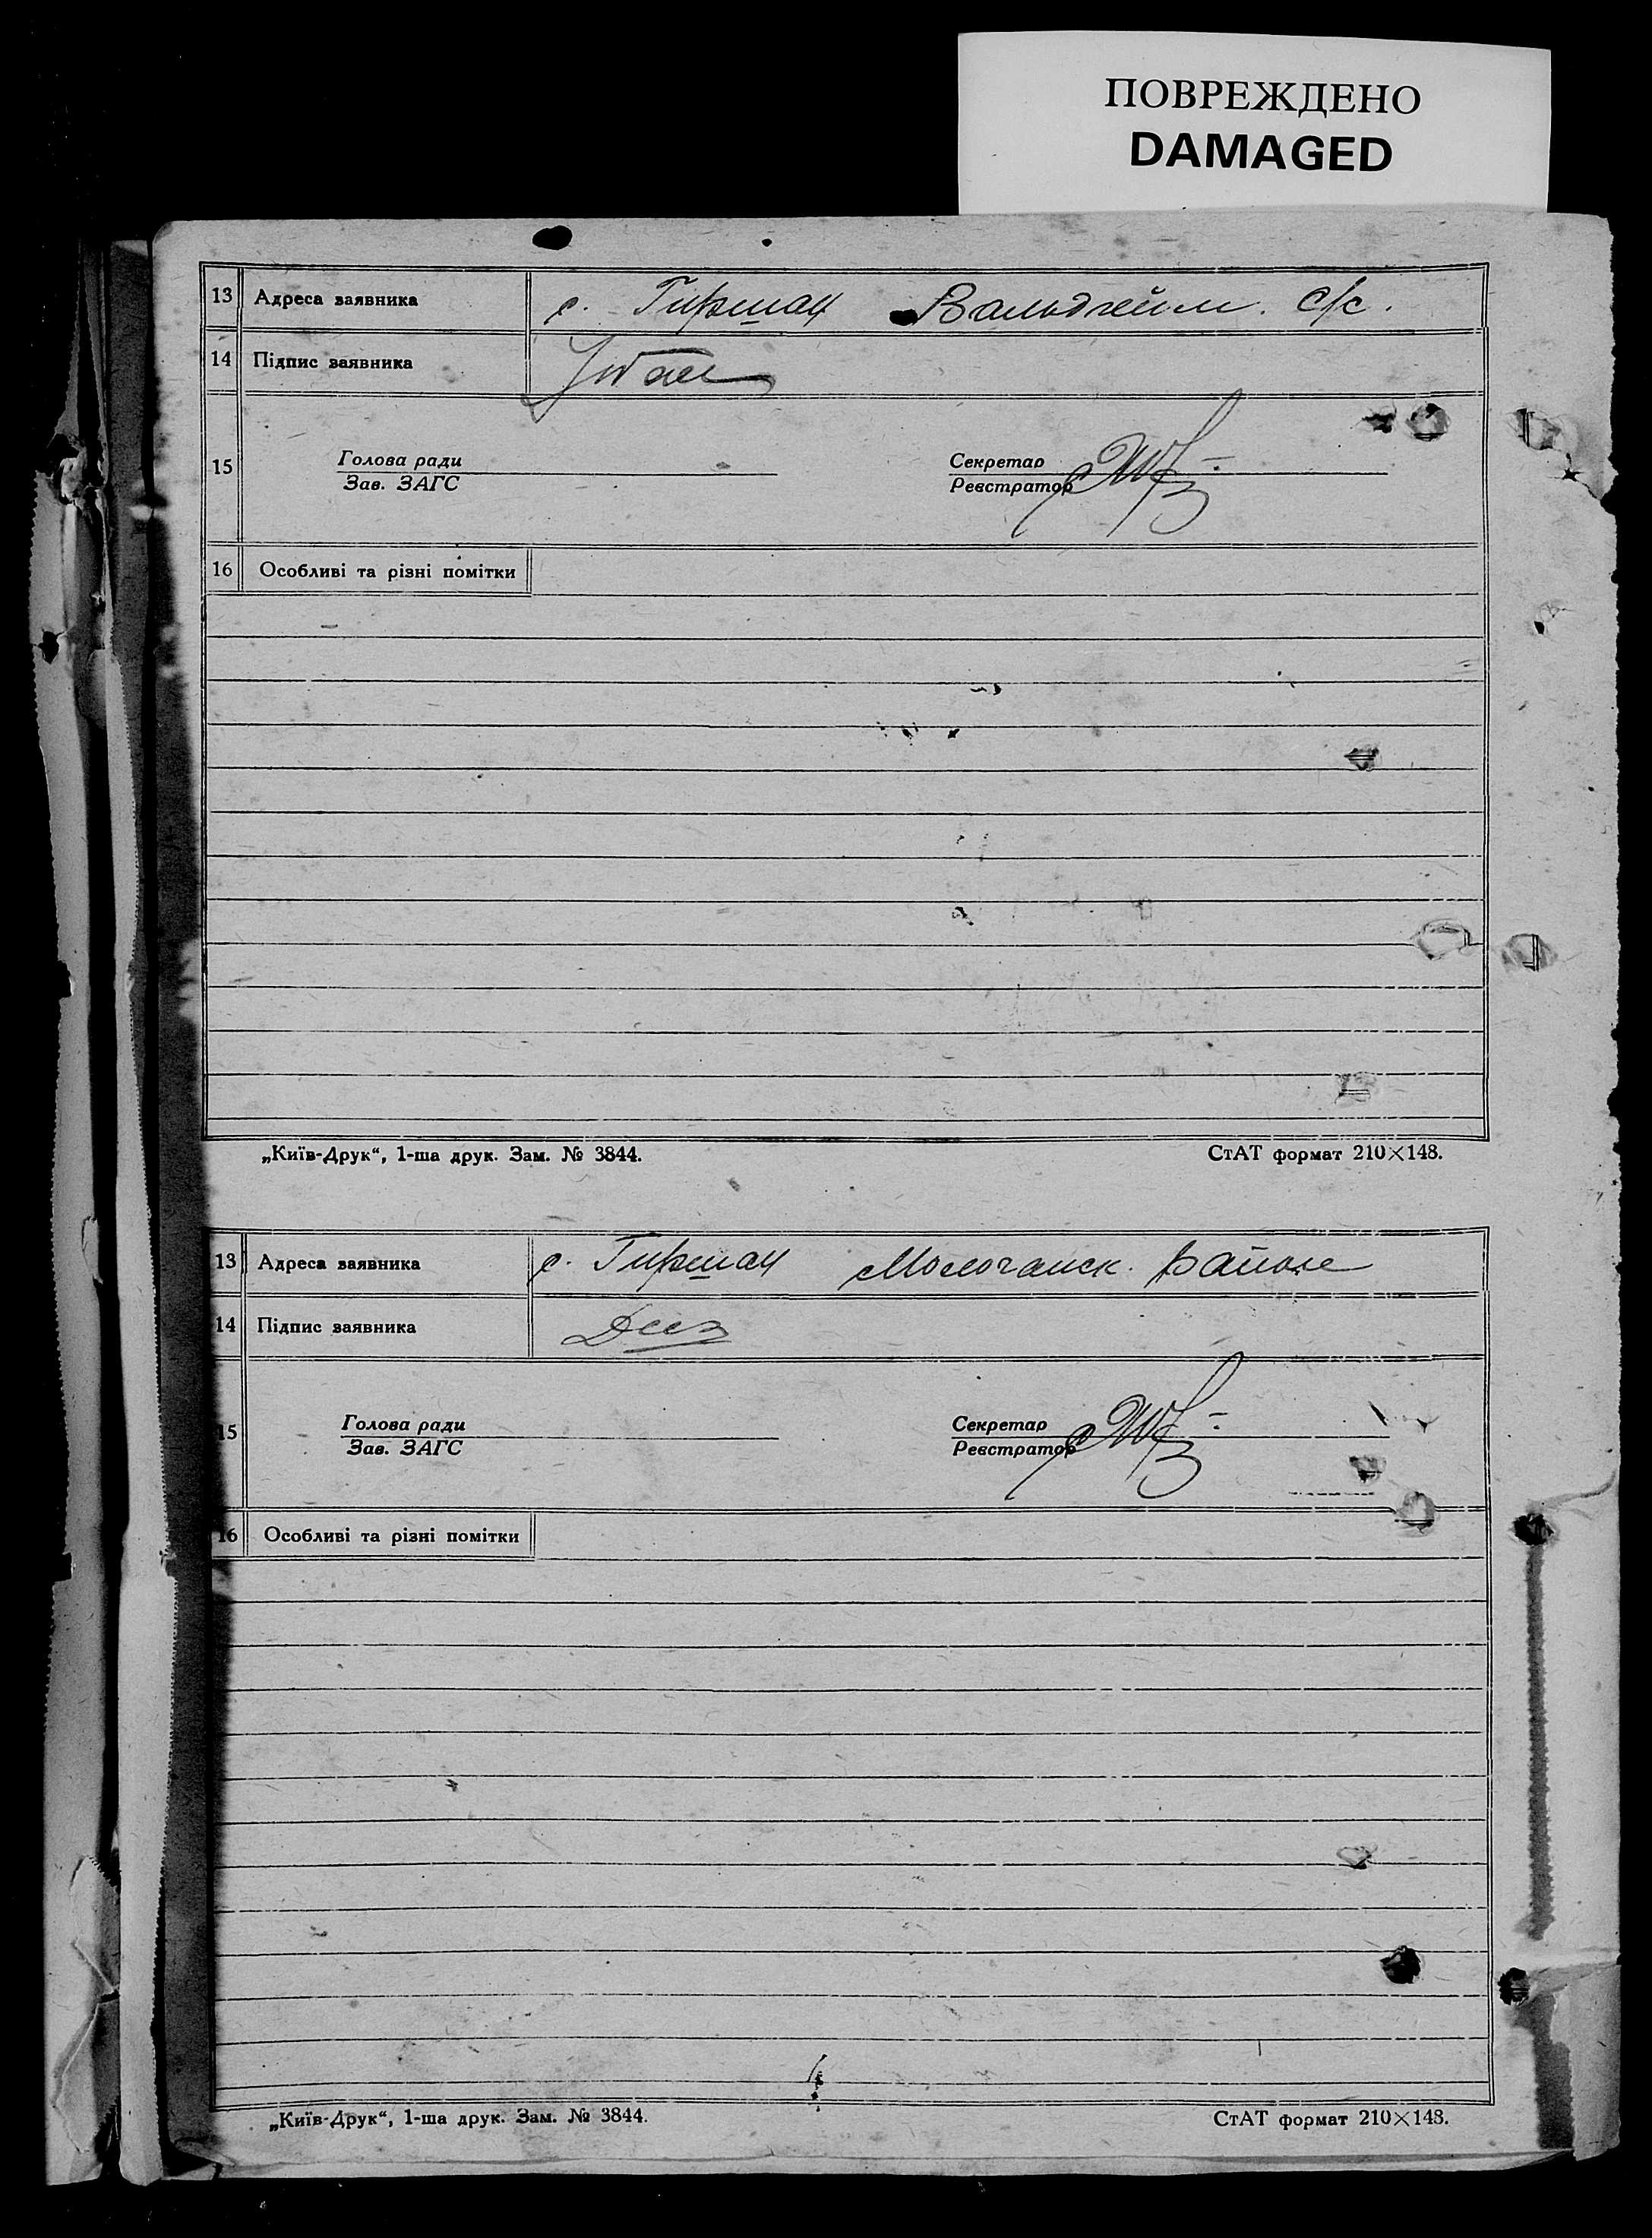 ПОВРЕЖДЕНО
DAMAGED
13 Адреса заявника с. Гиршац Вальдгейм. с/с.
14 Підпис заявника
15 Голова ради Секретар
Зав. ЗАГС Реєстратор
16 Особливі та різні помітки
„Київ-Друк“, 1-ша друк. Зам. № 3844. СтАТ формат 210×148.
13 Адреса заявника с. Гиршац Молочанск. района
14 Підпис заявника
15 Голова ради Секретар
Зав. ЗАГС Реєстратор
16 Особливі та різні помітки
„Київ-Друк“, 1-ша друк. Зам. № 3844. СтАТ формат 210×148.